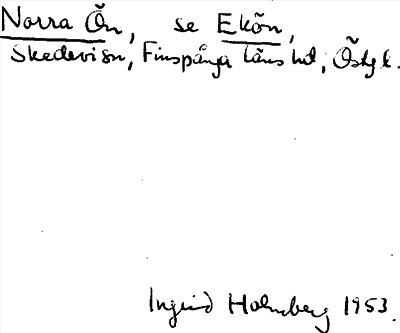 Norra Ön, se Ekön,
Skedevi sn, Finspånga läns hd, Östg l.
Ingrid Holmberg 1953.